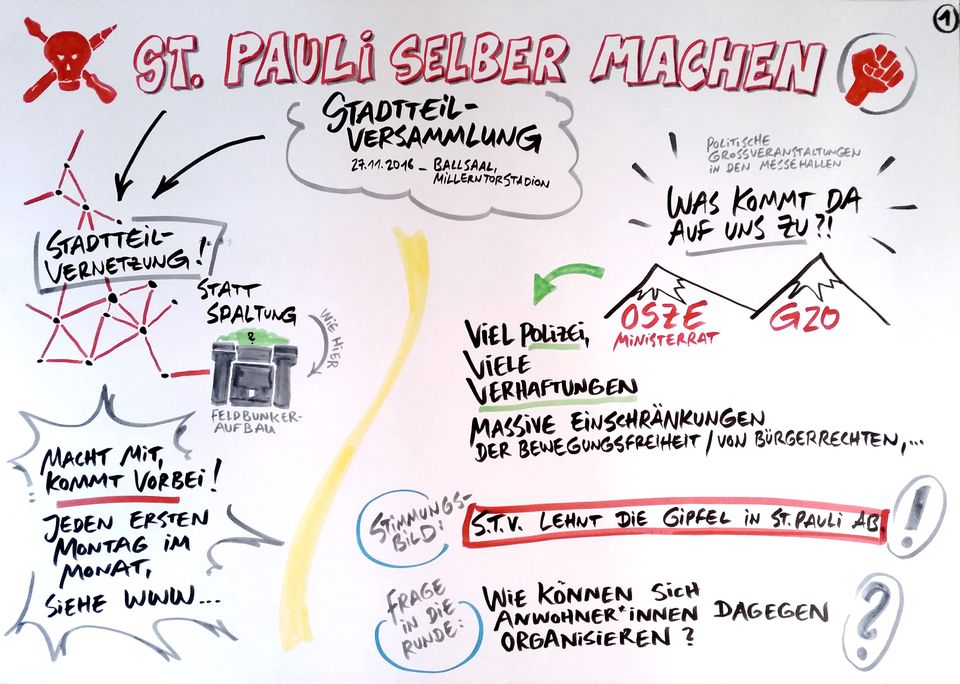 1
ST. PAULI SELBER MACHEN
STADTTEIL-
VERSAMMLUNG
27.11.2016 _ BALLSAAL,
MILLERNTORSTADION
STADTTEIL-
VERNETZUNG!
STATT
SPALTUNG
?
WIE HIER
FELDBUNKER-
AUFBAU
MACHT MIT,
KOMMT VORBEI!
JEDEN ERSTEN
MONTAG IM
MONAT,
SIEHE WWW...
POLITISCHE
GROSSVERANSTALTUNGEN
IN DEN MESSEHALLEN
WAS KOMMT DA
AUF UNS ZU?!
OSZE
MINISTERRAT
G20
VIEL POLIZEI,
VIELE
VERHAFTUNGEN
MASSIVE EINSCHRÄNKUNGEN
DER BEWEGUNGSFREIHEIT / VON BÜRGERRECHTEN,...
STIMMUNGS-
BILD:
S.T.V. LEHNT DIE GIPFEL IN ST. PAULI AB
!
FRAGE
IN DIE
RUNDE:
WIE KÖNNEN SICH
ANWOHNER*INNEN DAGEGEN
ORGANISIEREN?
?